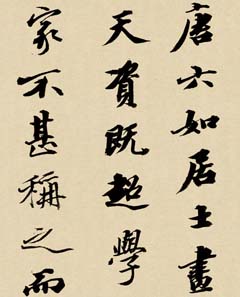 唐六如居士畫
天資既超學
家不甚稱之而